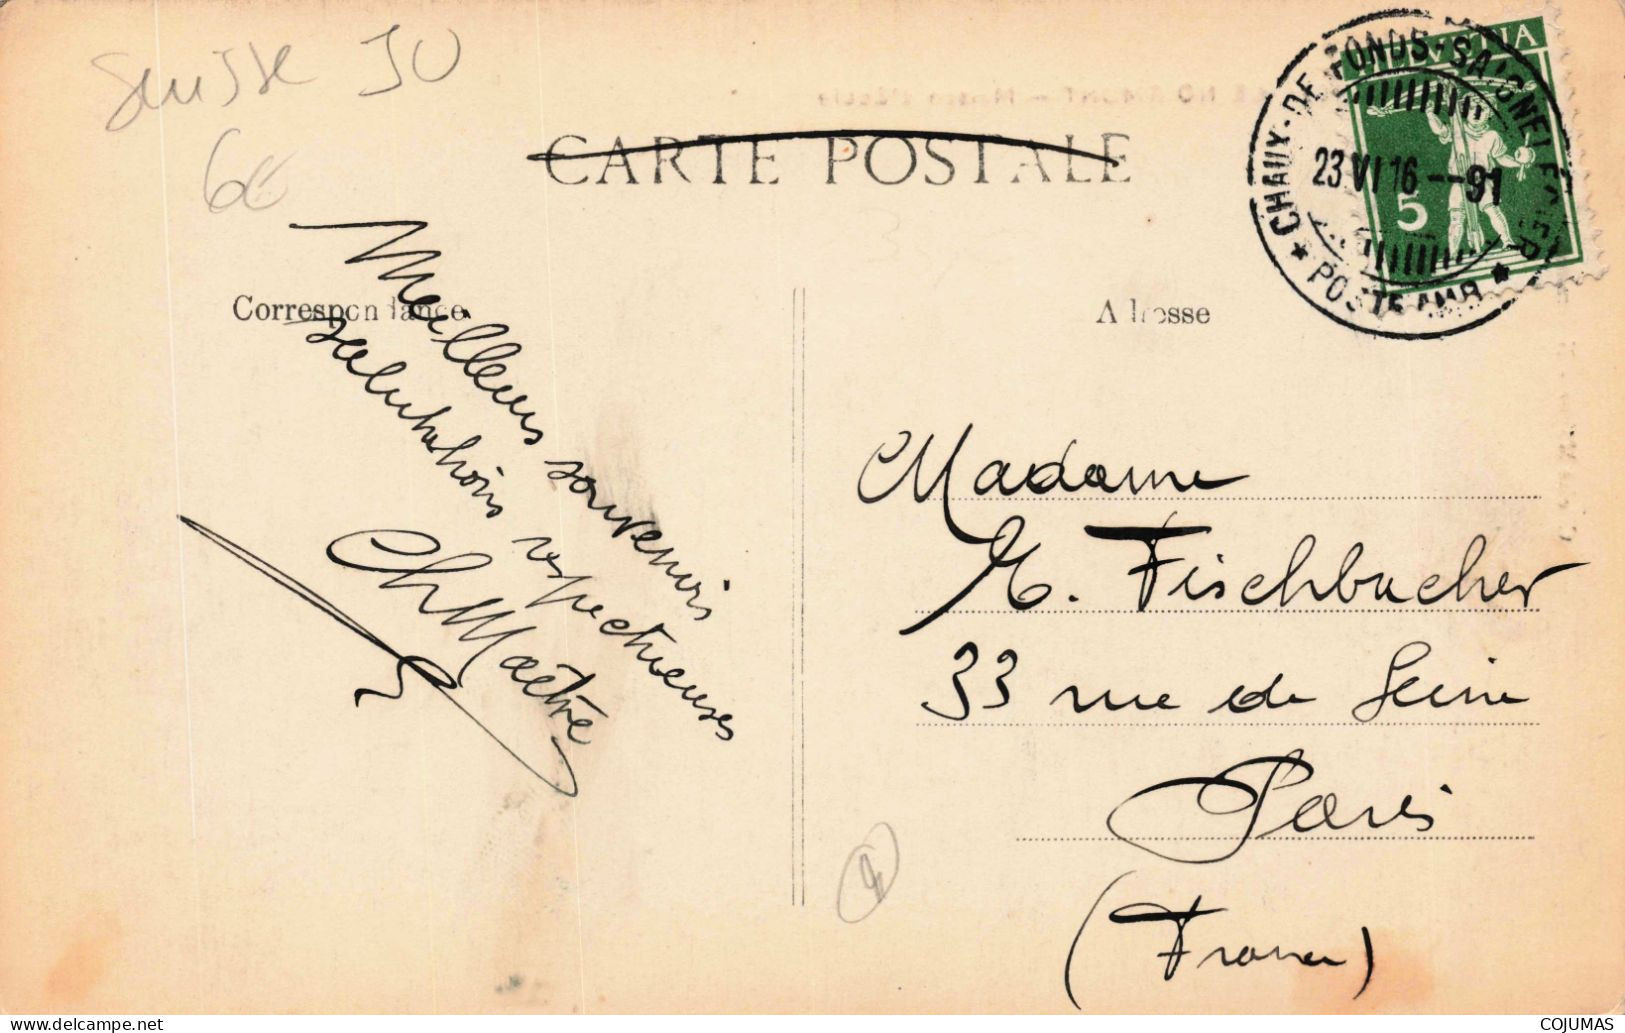 Suisse JU
6€
CARTE POSTALE
HELVETIA
5
CHAUX-DE-FONDS-SAIGNELEGIER
23 VI 16 -- 9
* POSTE AMB. *
Correspondance
Adresse
Meilleurs souvenirs
salutations respectueuses
Ch Maître
Madame
E. Fischbacher
33 rue de Seine
Paris
(France)
COJUMAS